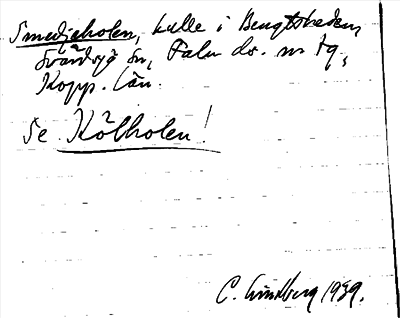 Smedjeholen, kulle i Bengtsheden,
Svärdsjö sn, Falu ds. n. tg,
Kopp. län.
Se Kölholen!
C. Lindberg 1939.